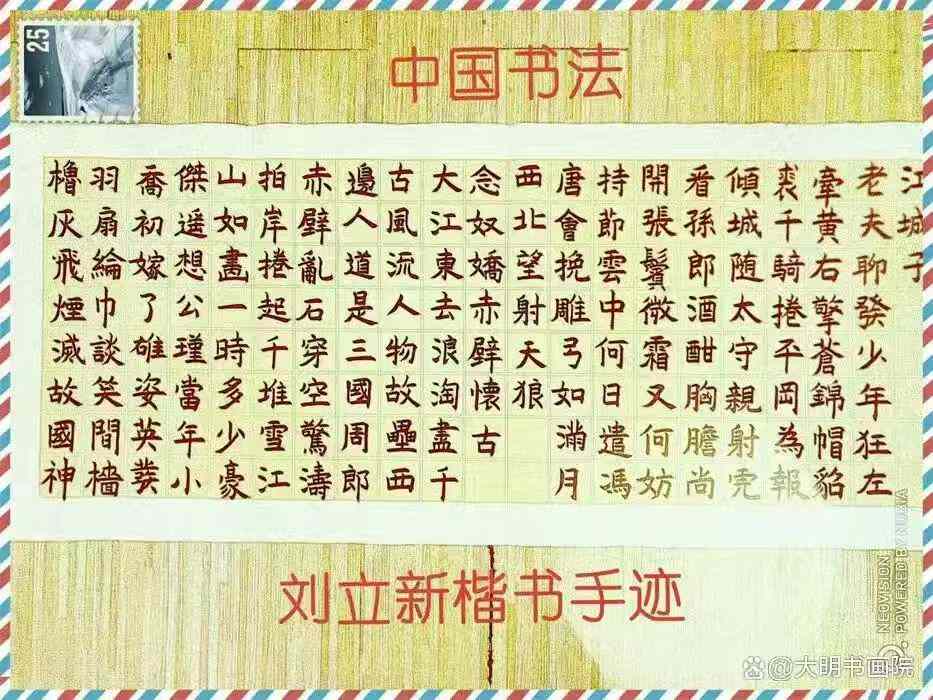 25
中国书法
江城子
老夫聊發少年狂左
牽黄右擎蒼錦帽貂
裘千騎捲平岡為報
傾城随太守親射虎
看孫郎酒酣胸膽尚
開張鬢微霜又何妨
持節雲中何日遣馮
唐會挽雕弓如滿月
西北望射天狼
念奴嬌赤壁懷古
大江東去浪淘盡千
古風流人物故壘西
邊人道是三國周郎
赤壁亂石穿空驚濤
拍岸捲起千堆雪江
山如畵一時多少豪
傑遥想公瑾當年小
喬初嫁了雄姿英發
羽扇綸巾談笑間檣
櫓灰飛煙滅故國神
刘立新楷书手迹
NEOVISION
POWERED BY NUBIA
@大明书画院